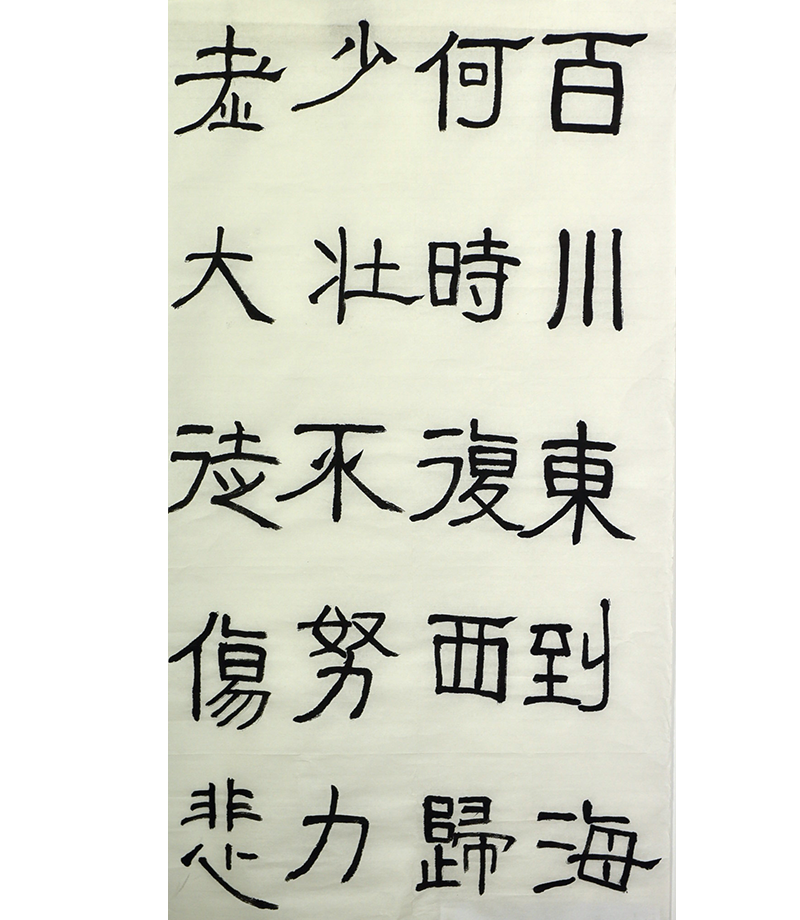 百川東到海
何時復西歸
少壮不努力
老大徒傷悲